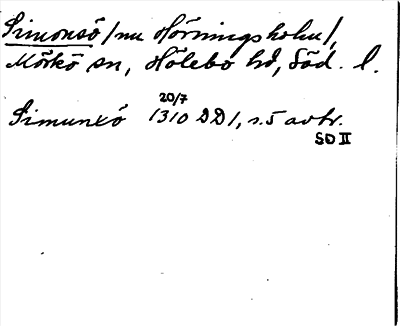 Simonsö /nu Hörningsholm/,
Mörkö sn, Hölebo hd, Söd. l.
20/7
Simunxö 1310 DD 1, s. 5 avtr.
SD II